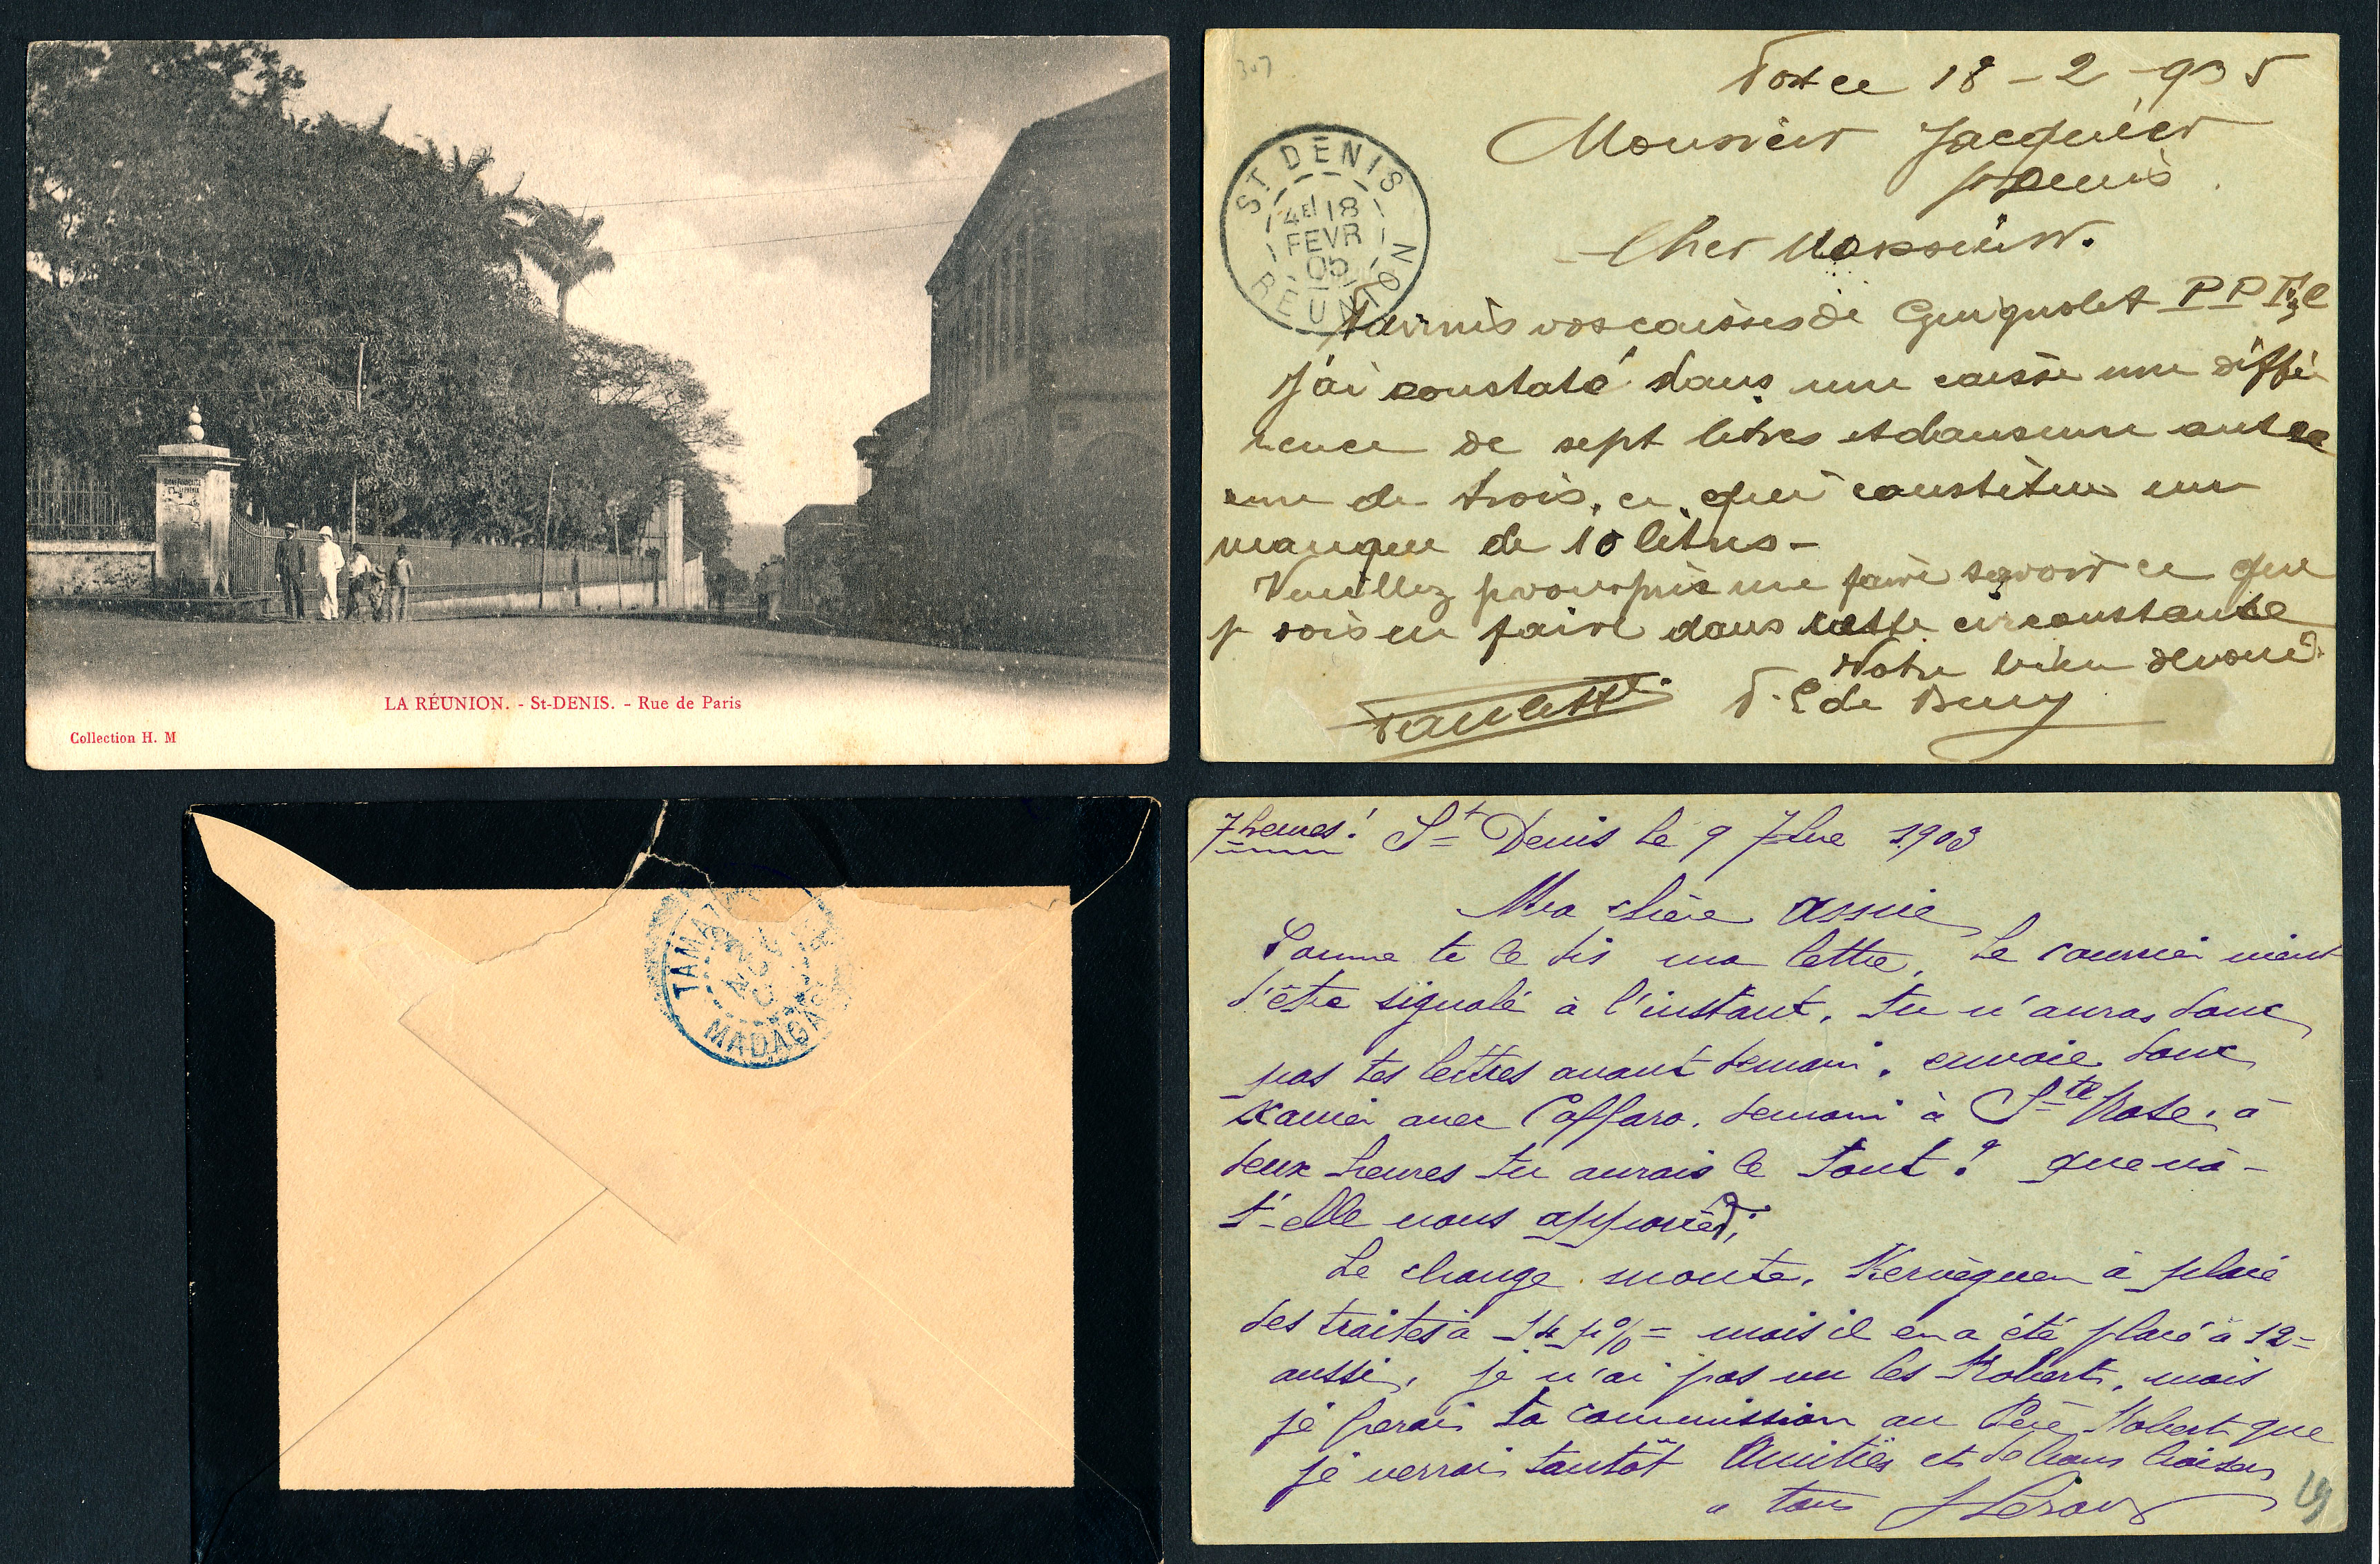 LA RÉUNION. - St-DENIS. - Rue de Paris
Collection H. M
307
18 - 2 - 905
Monsieur Jacquier
St Denis
Cher Monsieur.
ST DENIS
4E 18
FEVR
05
RÉUNION
vos caisses de Guignolet
J'ai constaté dans une caisse une diffé
rence de sept litres et dans une autre
une de trois, ce qui constitue un
manque de 10 litres -
Veuillez je vous prie me faire savoir ce que
je dois en faire dans cette circonstance
Votre bien dévoué
TAMATAVE
NOV
MADAGASCAR
7 heures! St Denis le 9 7bre 1903
Ma chère
Comme te le dis ma lettre, le courrier vient
d'être signalé à l'instant, tu n'auras donc
pas tes lettres avant demain. envoie donc
Xavier avec Caffaro. demain à Ste Rose. à
deux heures tu aurais le tout! que va-
t-elle nous apporter?
Le change monte. Kervéguen à placé
des traites à 14 p% = mais il en a été placé à 12 =
aussi, je n'ai pas vu les Robert, mais
je ferai ta commission au Père Robert que
je verrai tantôt Amitiés et de bons baisers
à tous